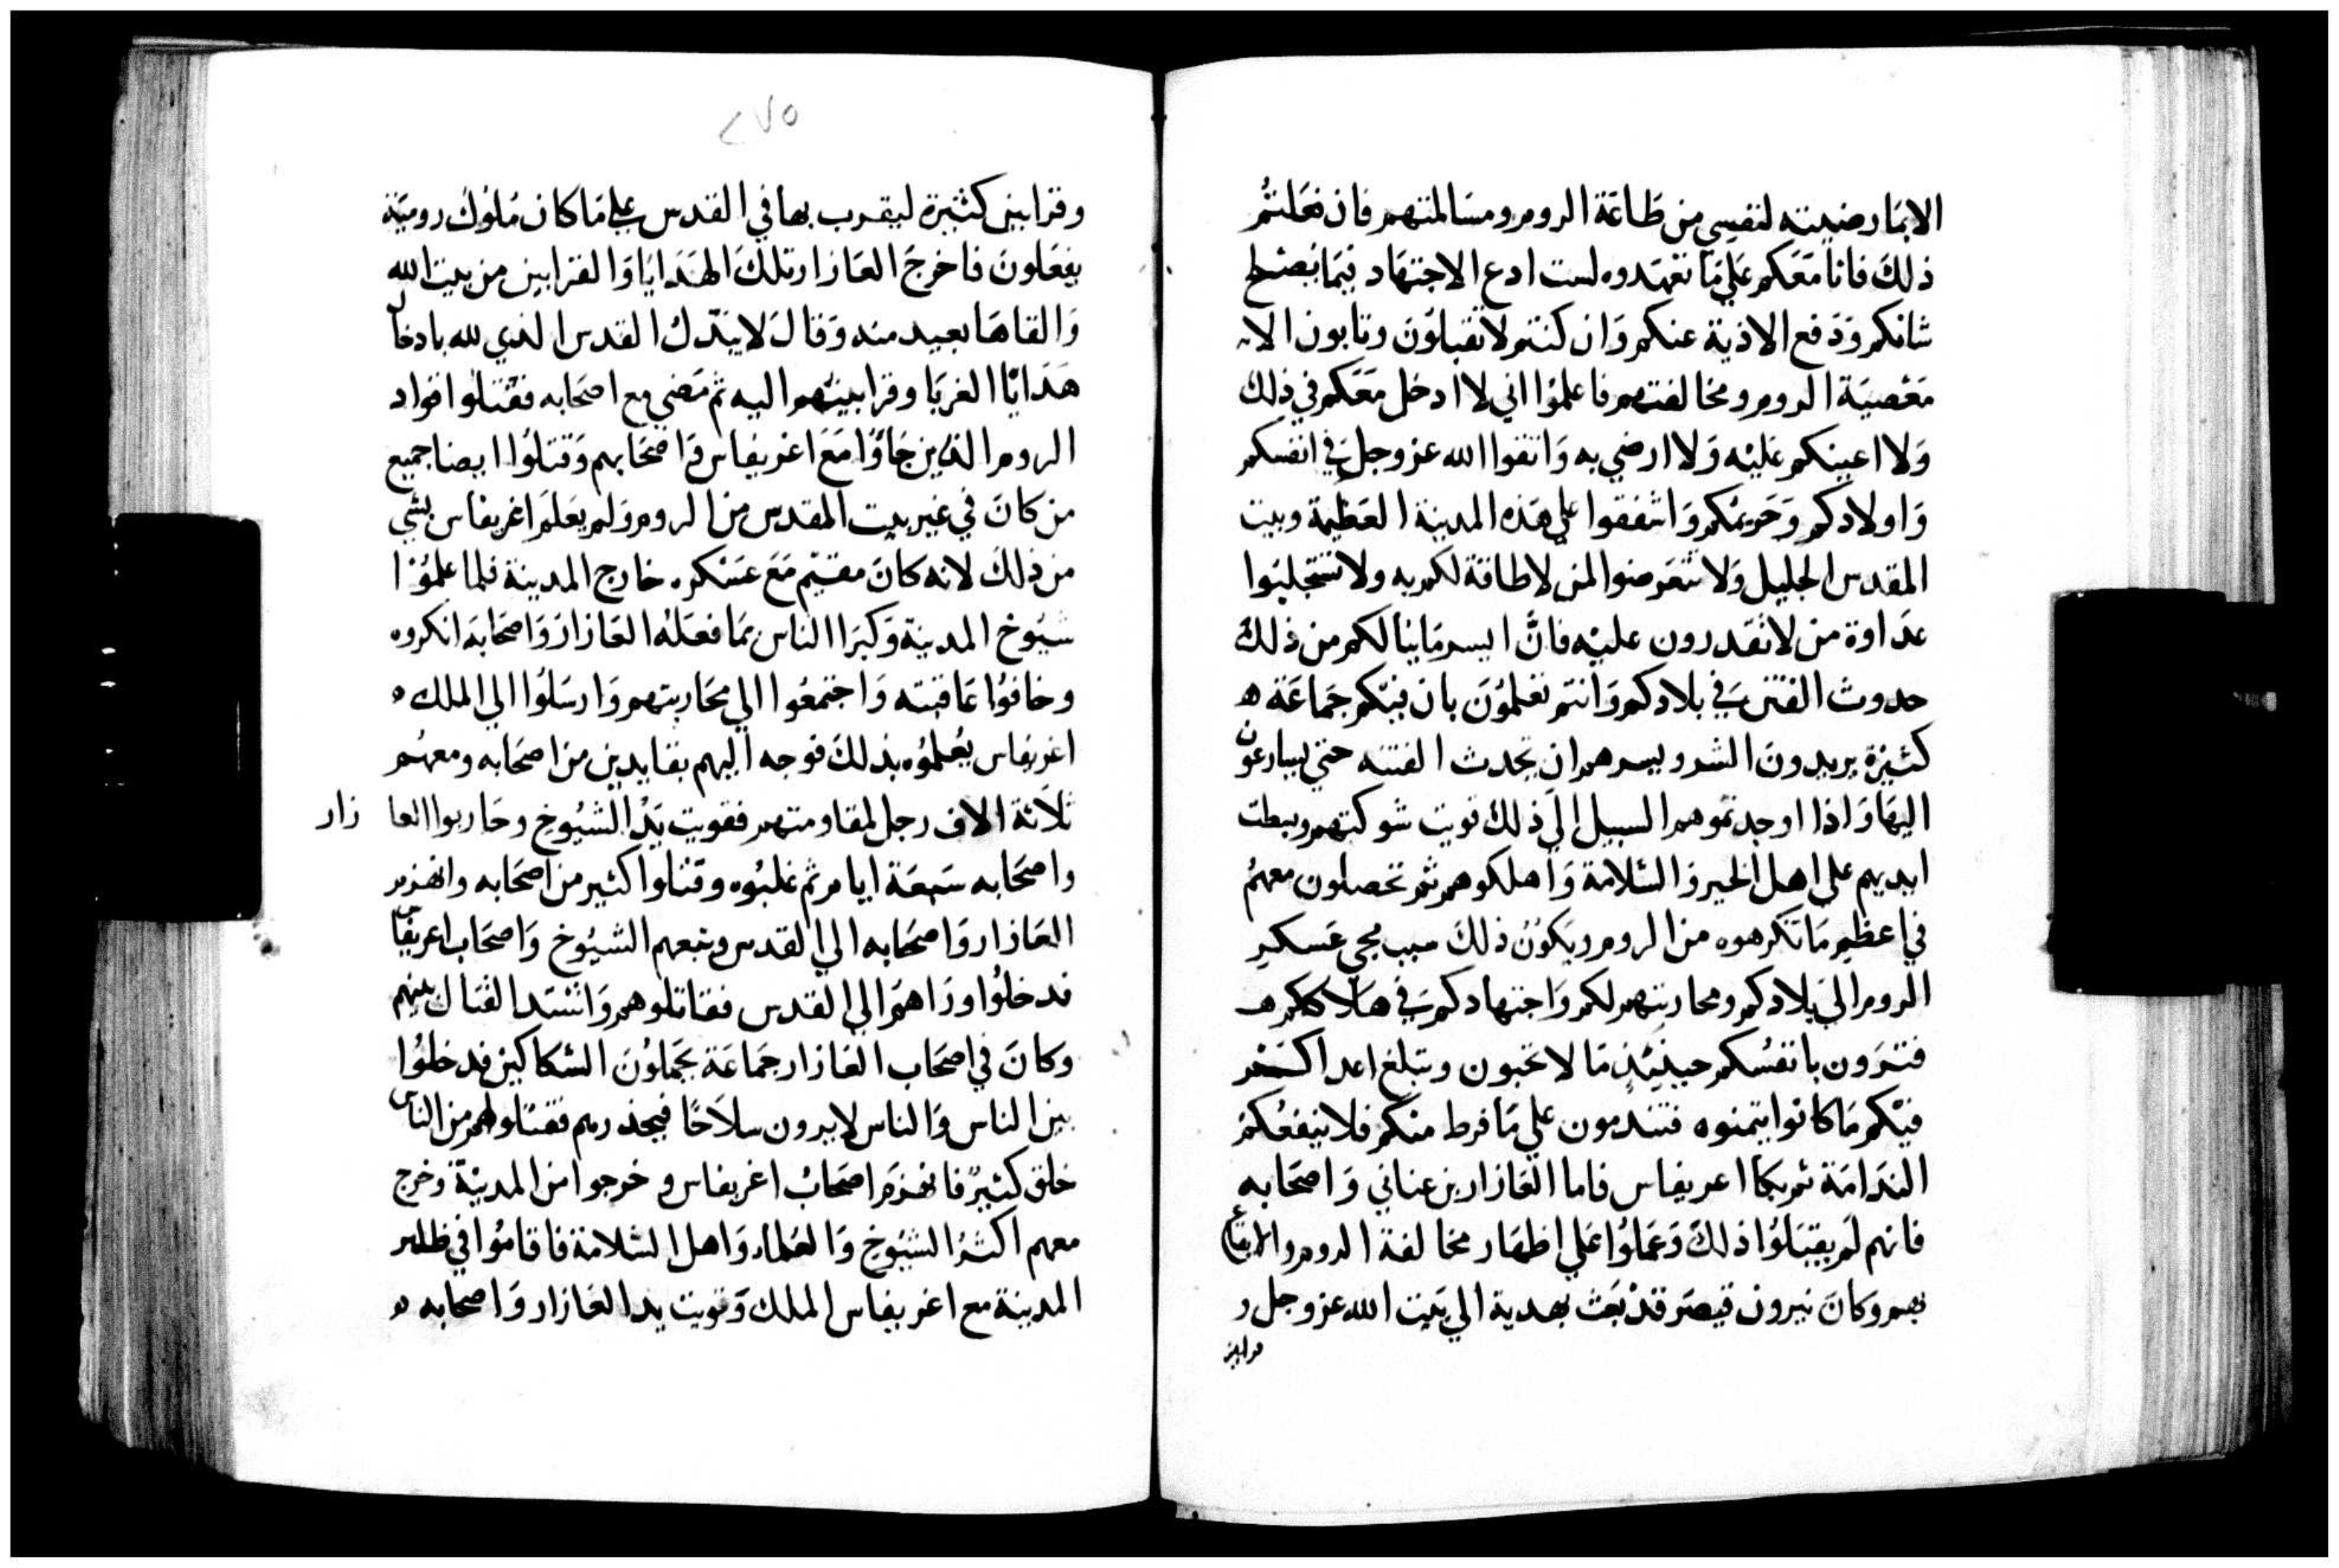 الا بما رضيته لنفسي من طاعة الروم ومسالمتهم فان فعلتم
ذلك فانا معكم علي ما تعهدوه لست ادع الاجتهاد فيما يصلح
شانكم ودفع الاذية عنكم وان كنتم لا تقبلون وتابون الا
معصية الروم ومخالفتهم فاعلموا اني لا ادخل معكم في ذلك
ولا اعينكم عليه ولا ارضي به واتقوا الله عز وجل في انفسكم
واولادكم وحريمكم واشفقوا علي هذه المدينة العظيمة وبيت
المقدس الجليل ولا تتعرضوا لمن لا طاقة لكم به ولا تستجلبوا
عداوة من لا تقدرون عليه فان ايسر ما ينالكم من ذلك
حدوث الفتن في بلادكم وانتم تعلمون بان فيكم جماعة
كثيرة يريدون الشر ويسرهم ان تحدث الفتنه حتي يسارعون
اليها واذا اوجدتموهم السبيل الي ذلك قويت شوكتهم وبسطت
ايديهم علي اهل الخير والسلامة واهلكوهم ثم تحصلون معهم
في اعظم ما تكرهوه من الروم ويكون ذلك سبب مجي عسكر
الروم الي بلادكم ومحاربتهم لكم واجتهادكم في هلاككم
فترون بانفسكم حينيذ ما لا تحبون وتبلغ اعداكم
فيكم ما كانوا يتمنوه فتندمون علي ما فرط منكم فلا ينفعكم
الندامة ثم بكا اغريفاس فاما العازار بن عناني واصحابه
فانهم لم يقبلوا ذلك وعملوا علي اظهار مخالفة الروم والايقاع
بهم وكان نيرون قيصر قد بعث بهدية الي بيت الله عز وجل و
قرابين
٢٧٥
وقرابين كثيرة ليقرب بها في القدس علي ما كان ملوك رومية
يفعلون فاخرج العازار تلك الهدايا والقرابين من بيت الله
والقاها بعيد منه وقال لا يتدنس القدس الذي لله بادخال
هدايا الغربا وقرابينهم اليه ثم مضي مع اصحابه فقتلوا قواد
الروم الذين جاؤا مع اغريفاس واصحابهم وقتلوا ايضا جميع
من كان في غير بيت المقدس من الروم ولم يعلم اغريفاس بشي
من ذلك لانه كان مقيم مع عسكره خارج المدينة فلما علموا
شيوخ المدينة وكبرا الناس بما فعله العازار واصحابه انكروه
وخافوا عاقبته واجتمعوا الي محاربتهم وارسلوا الي الملك
اغريفاس يعلموه بذلك فوجه اليهم بقايدين من اصحابه ومعهم
ثلاثة الاف رجل لمقاومتهم فقويت يد الشيوخ وحاربوا العازار
واصحابه سبعة ايام ثم غلبوه وقتلوا كثير من اصحابه وانهزم
العازار واصحابه الي القدس وتبعهم الشيوخ واصحاب اغريفاس
فدخلوا وراهم الي القدس فقاتلوهم واشتد القتال بينهم
وكان في اصحاب العازار جماعة يحملون السكاكين فدخلوا
بين الناس والناس لا يرون سلاحا فيحذرهم فقتلوا لهم من الناس
خلق كثير فانهزم اصحاب اغريفاس وخرجوا من المدينة وخرج
معهم اكثر الشيوخ والعلماء واهل السلامة فاقاموا في ظاهر
المدينة مع اغريفاس الملك وقويت يد العازار واصحابه